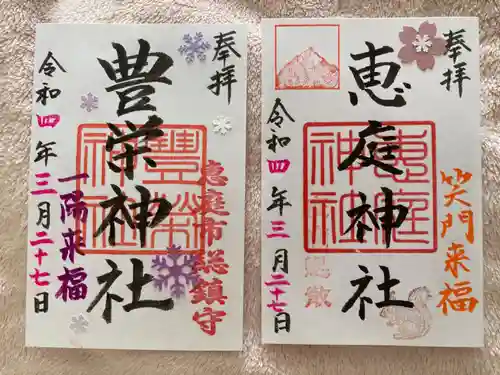 奉拝
豊栄神社
豊栄神社
恵庭市総鎮守
一陽来福
令和四年三月二十七日
奉拝
恵庭神社
恵庭神社
笑門来福
令和四年三月二十七日